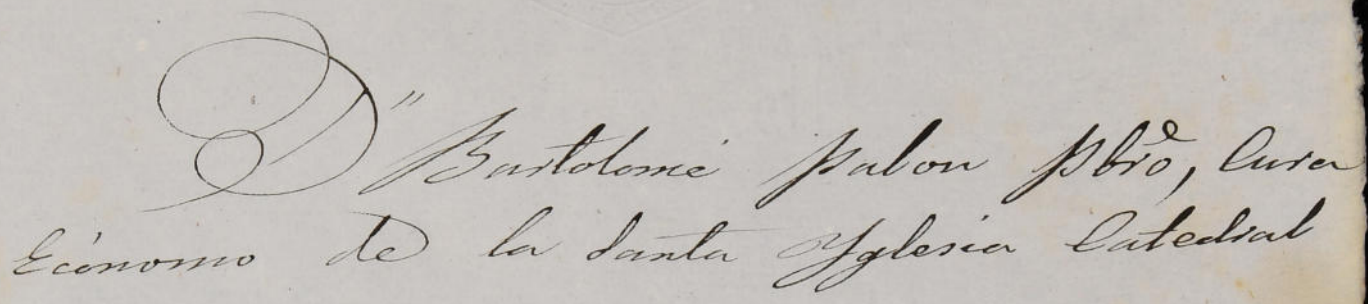 D" Bartolomé Pabon Pbrõ, Cura
Ecónomo de la Santa Yglesia Catedral